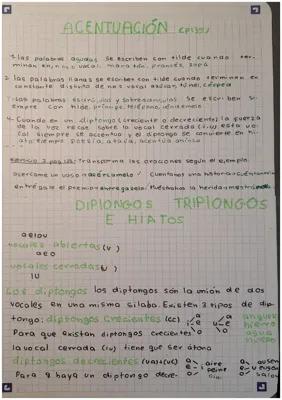 ACENTUACIÓN (P135)
1. las palabras agudas se escriben con tilde cuando ter-
minan en, n o s vocal. maratón, francés, sofá
2. las palabras llanas se escriben con tilde cuando terminan en
constante distinta de n o s vocal azúcar, túnel, césped
3. las palabras esdrújulas y sobreesdrújulas se escriben si-
empre con tilde. príncipe, teléfono,
4. Cuando en un diptongo (creciente o decreciente) la fuerza
de la voz recae sobre la vocal cerrada (i,u) esta vo-
cal siempre se acentua y el diptongo se convierte en hi-
ato. ejemplo: poesía, ataúd,
ejercicio 3 pag 125: Transforma las oraciones según el ejemplo.
acercame un vaso acércamelo / Cuentanos una historia cuéntanosla
entrégale el premio entrégaselo. Muéstranos la herida
DIPTONGOS TRIPTONGOS
E HIATOS
aeiou
vocales abiertas (V)
aeo
vocales cerradas (v)
IU
Los diptongos los diptongos son la unión de dos
vocales en una misma silaba. Existen 3 tipos de dip-
tongo: diptongos crecientes (cc) i a e o u a e o
Para que existan diptongos crecientes hierro agua
la vocal cerrada (iu) tiene que ser átono huevo
diptongos decrecientes (va)+(vc) a e o i aire peine a e o u
Para q haya un diptongo decre-